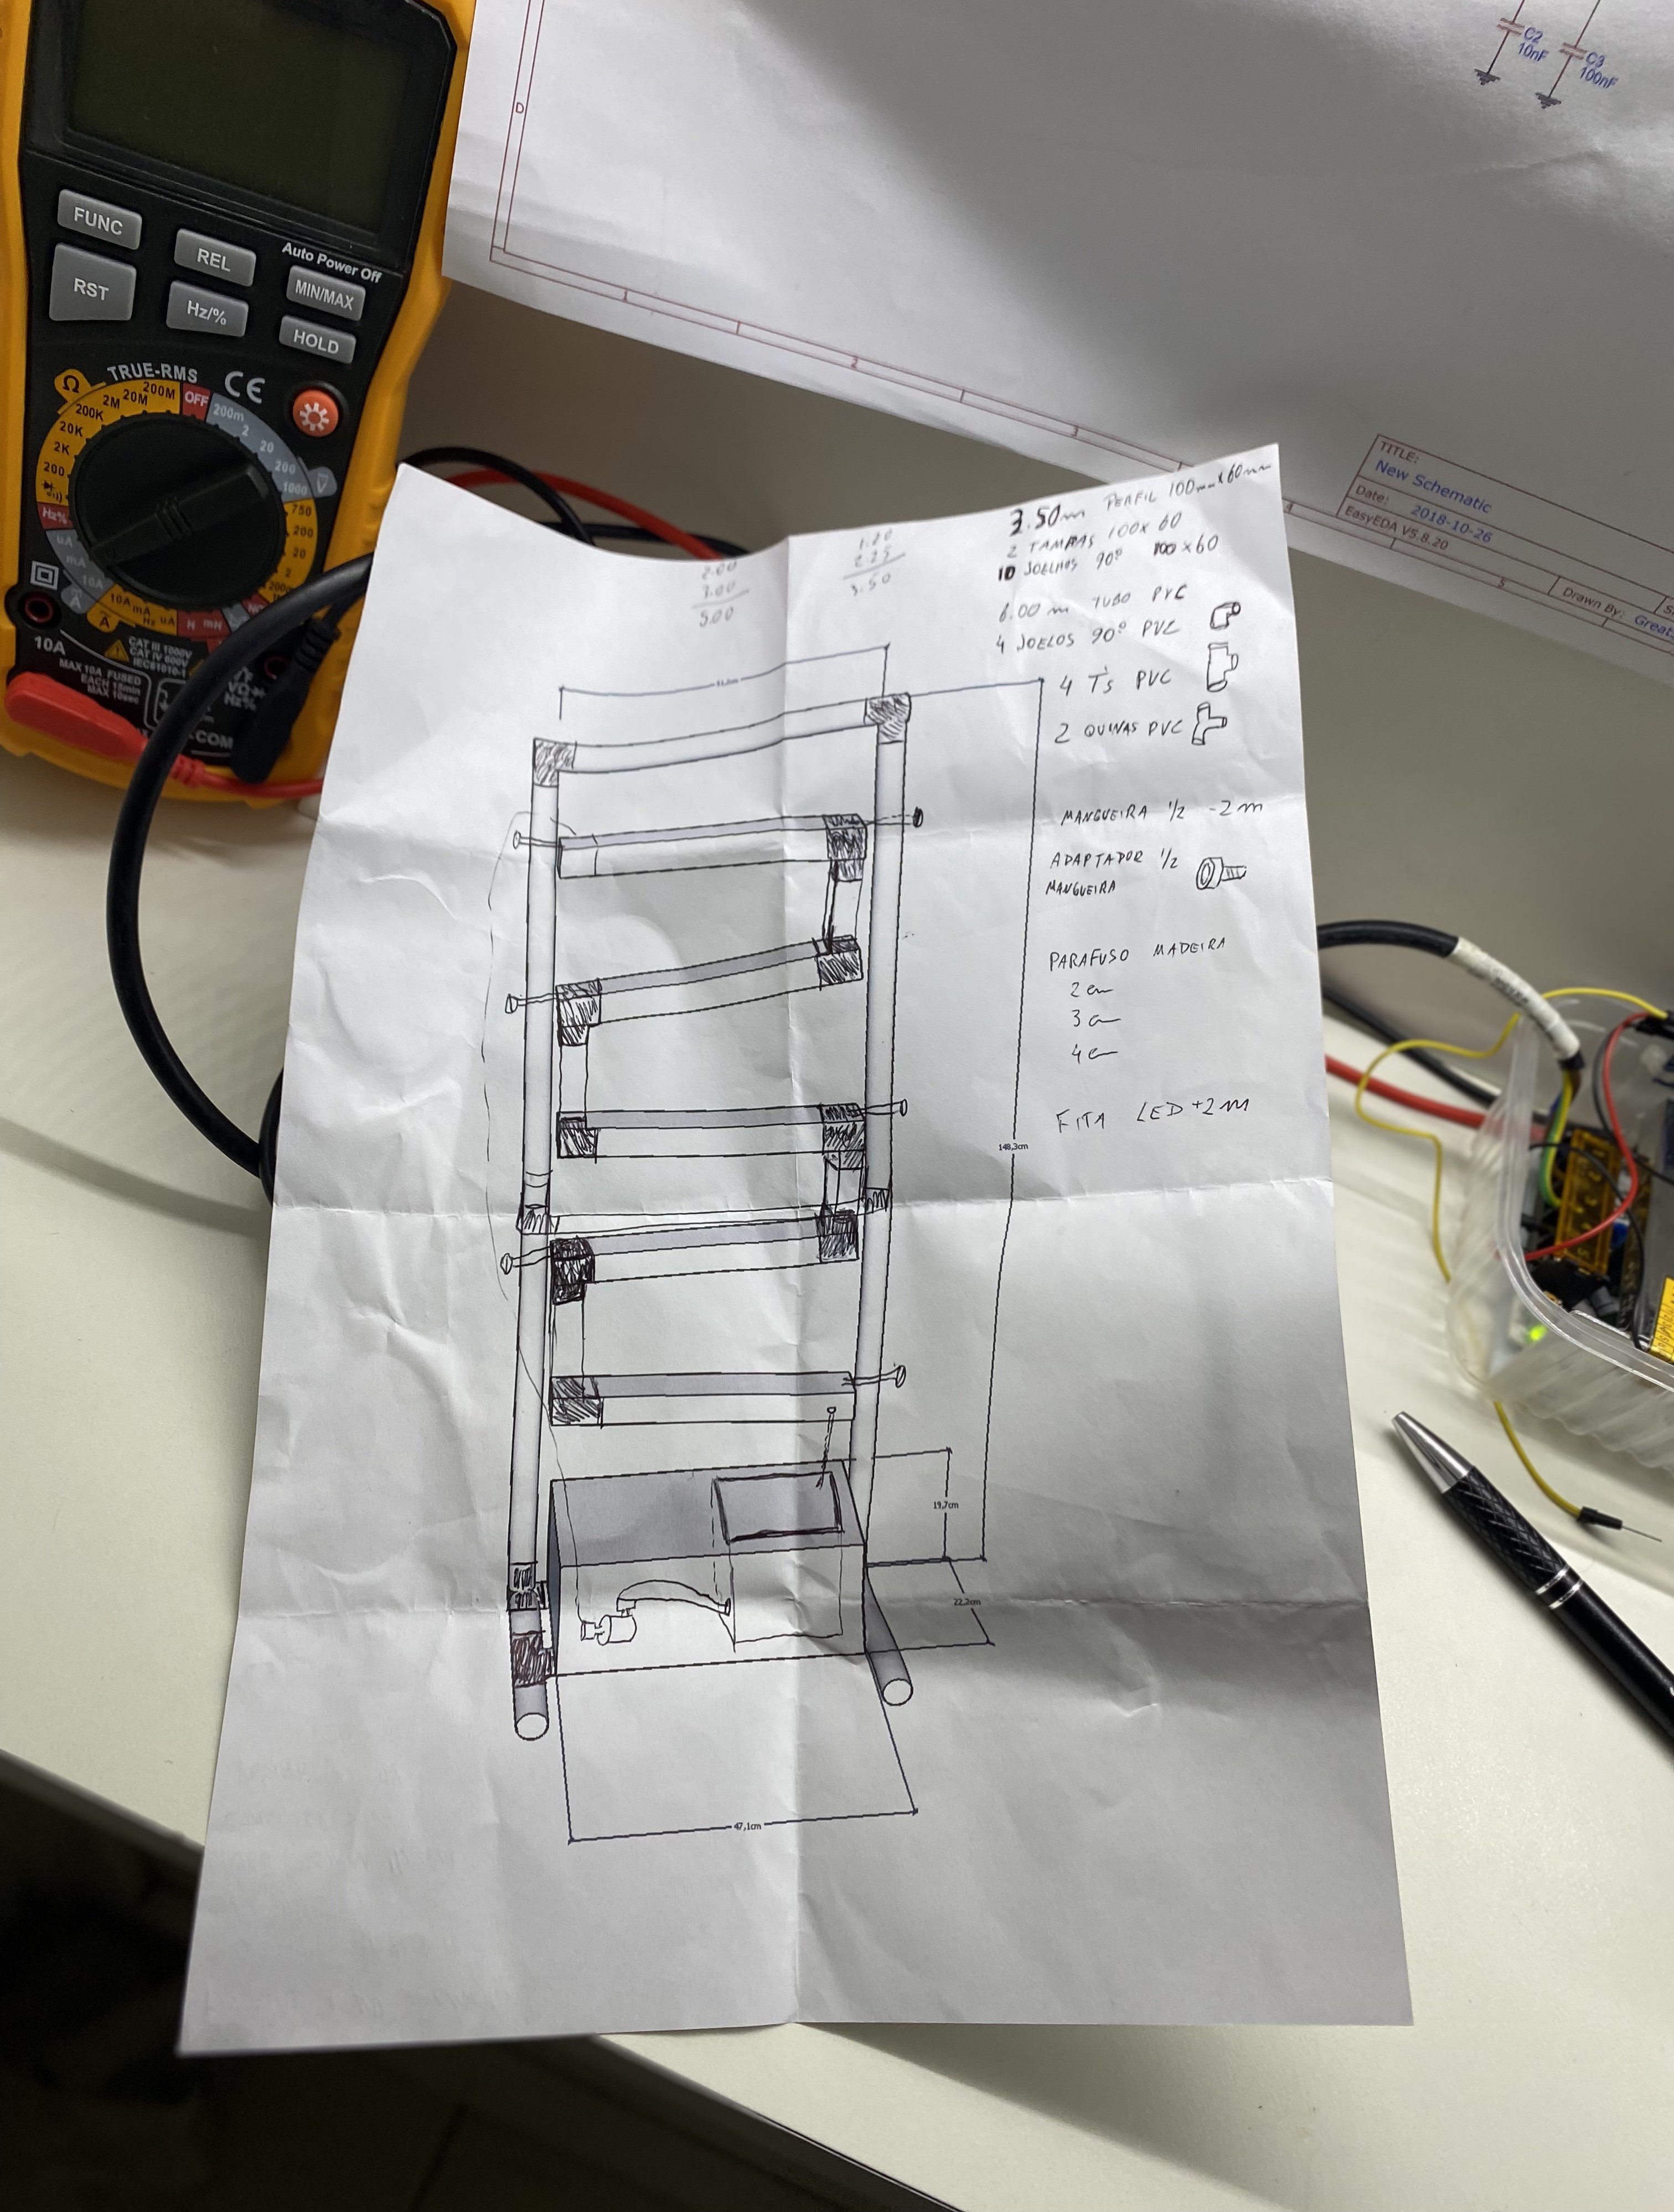 C2
10nF
C3
100nF
D
FUNC
REL
Auto Power Off
RST
Hz/%
MIN/MAX
HOLD
TRUE-RMS
CE
Ω
200M
20M
2M
200K
20K
2K
200
OFF
200m
2
20
200
1000
V
750
200
20
2
Hz%
uA
mA
10A
10A
mA
uA
A
10A
CAT III 1000V
CAT IV 600V
IEC61010-1
MAX 10A FUSED
EACH 15min
MAX 10sec
Hz%
COM
1
2
3
4
5
TITLE:
New Schematic
Date:
2018-10-26
EasyEDA V5.8.20
Drawn By:
Great
3.50m PERFIL 100mmx60mm
2 TAMPAS 100x60
10 JOELHOS 90° 100x60
6.00 m TUBO PVC
4 JOELOS 90° PVC
4 T's PVC
2 QUINAS PVC
MANGUEIRA 1/2 -2m
ADAPTADOR 1/2
MANGUEIRA
PARAFUSO MADEIRA
2cm
3cm
4cm
FITA LED +2m
2.00
3.00
5.00
1.20
2.25
3.50
148,3cm
19,7cm
22,2cm
47,1cm